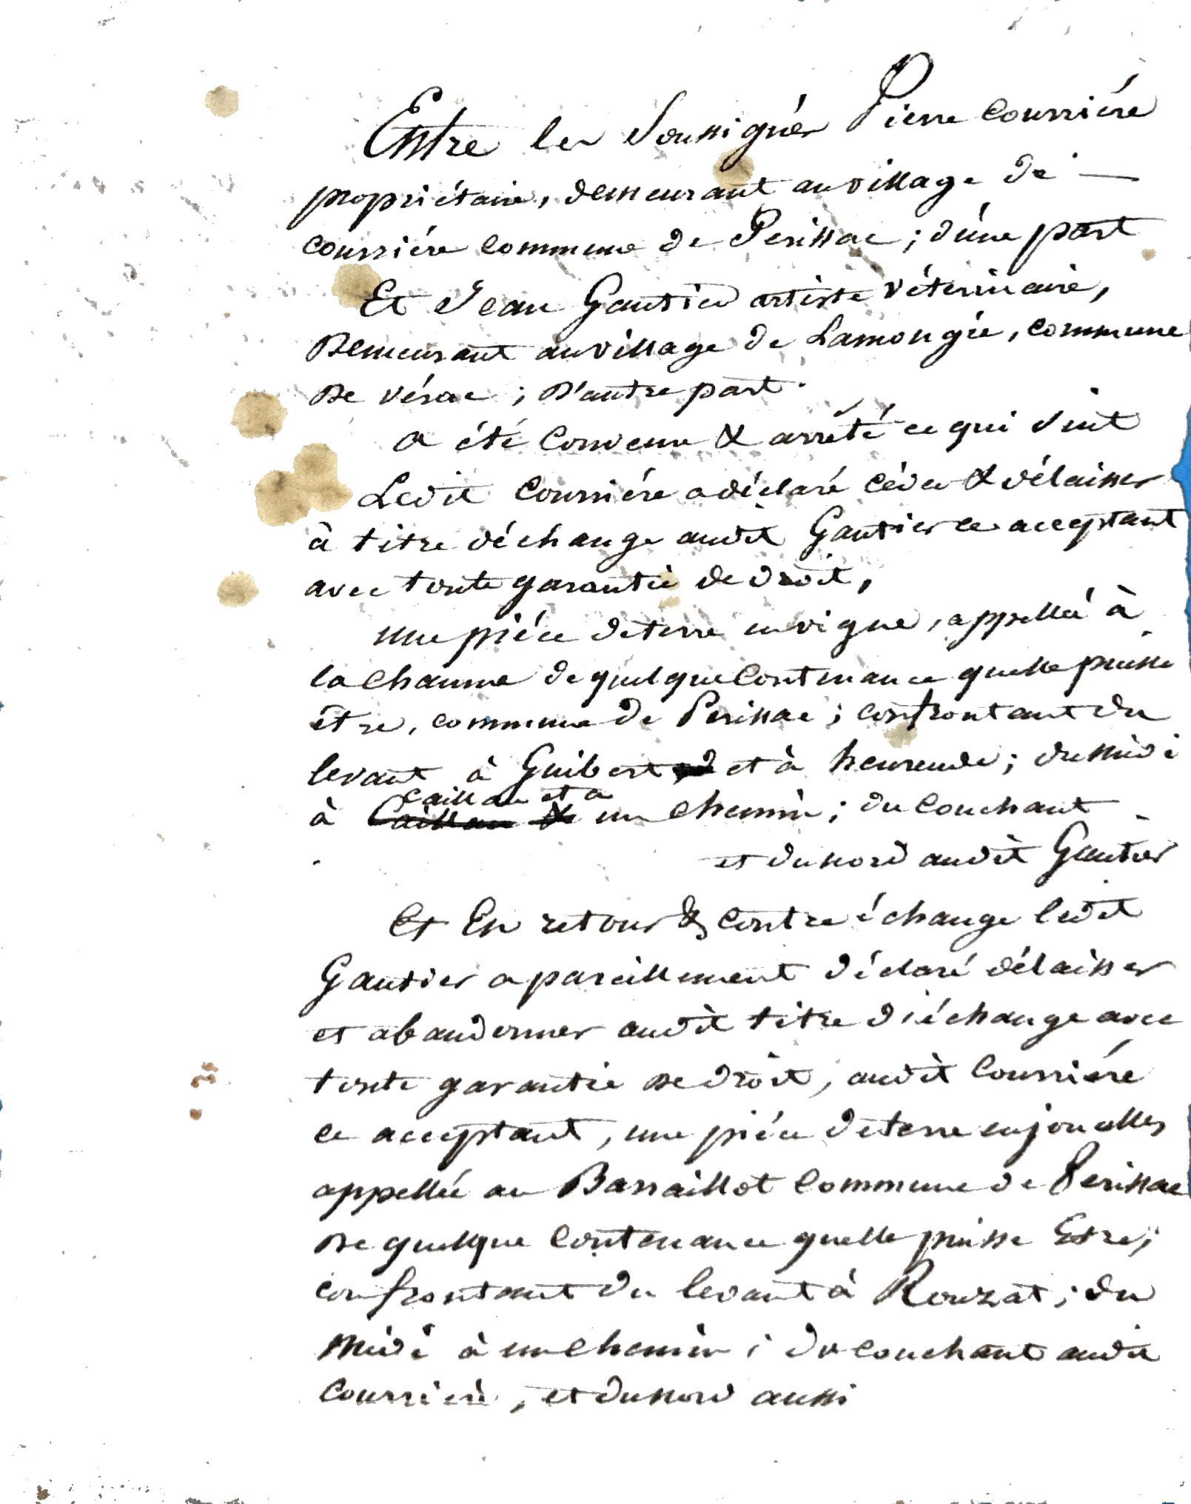 Entre les Soussignés Pierre Courriére
propriétaire, demeurant au village de —
courriére commune de Perissac ; d'une part
Et Jean Gautier artiste véterinaire,
Demeurant au village de Lamongie, commune
De vérac ; D'autre part.
a été convenu & arrété ce qui suit
Ledit Courriére a déclaré céder & délaisser
à titre déchange audit Gautier ce acceptant
avec toute garantie de droit,
une piéce de terre en vigne, appellée à
la Chaume de quelque Contenance quelle puisse
être, commune de Perissac ; confrontant du
levant à Guibert et à heureude ; du midi
à caillau et a un chemin ; du Couchant
et du nord audit Gautier
Et En retour & contre échange ledit
Gautier a pareillement déclaré délaisser
et abandonner audit titre d'échange avec
toute garantie de droit, audit Courriére
ce acceptant, une piéce de terre en joualles
appellée au Barraillot Commune de Perissac
De quelque Contenance quelle puisse Estre ;
confrontant du levant à Rouzat ; du
midi à un chemin ; du couchant audit
Courriere, et du nord aussi